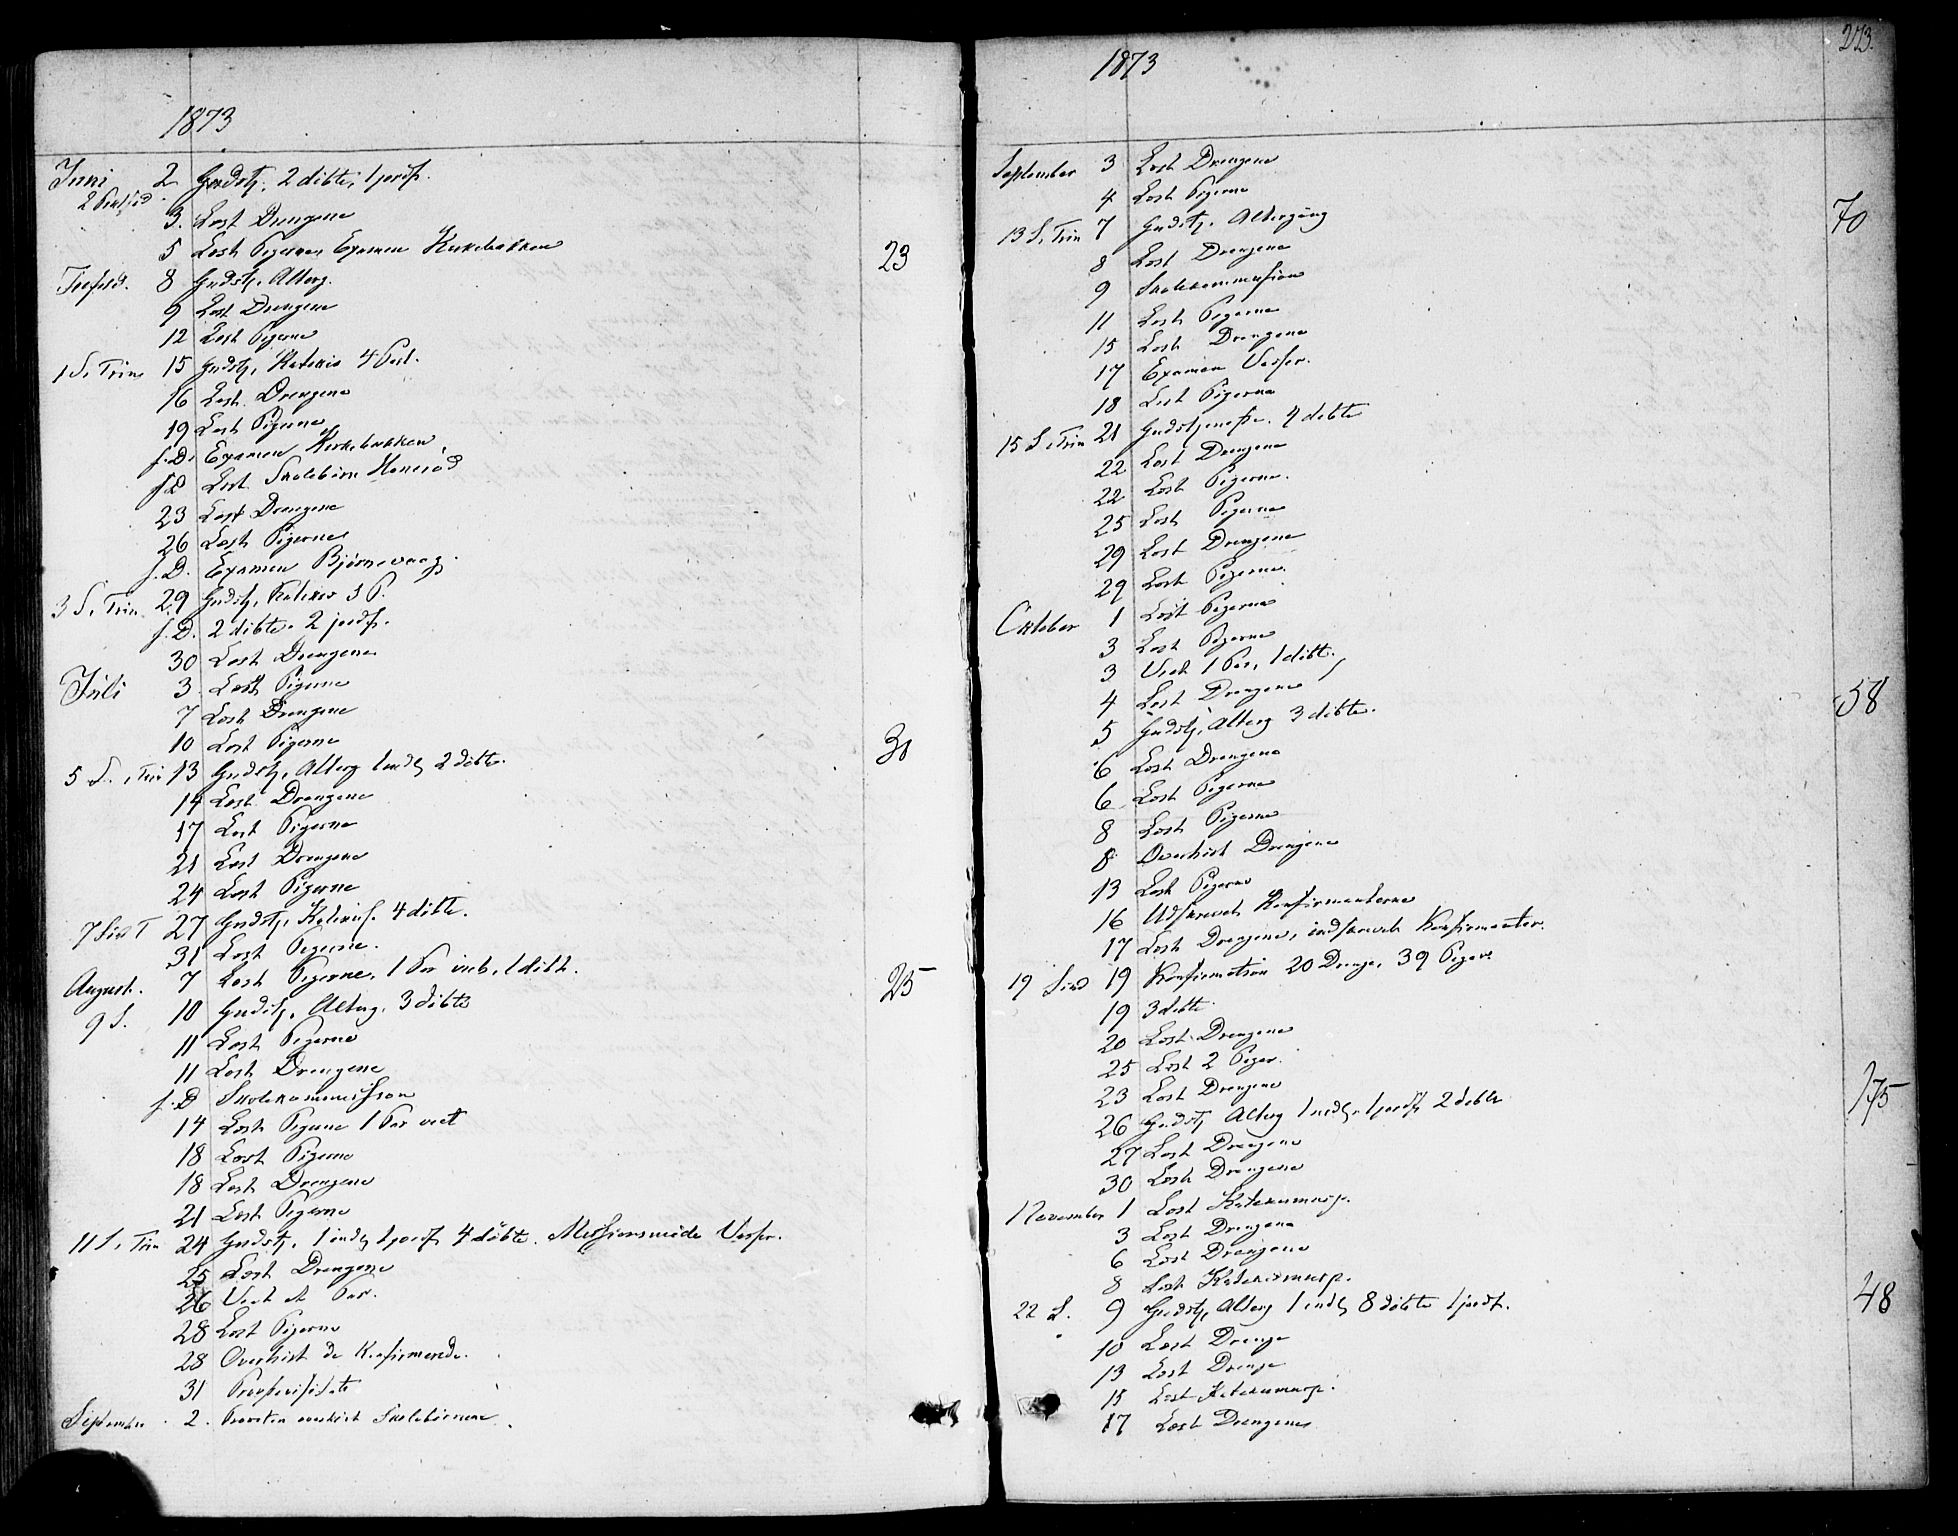 1873
Juni 2 Gudstj. 2 döbte, 1 jordf.
3. Læst Drengene
5 Læst Pigerne, Examen Kirkebakken
Trefold. 8 Gudstj. Alterg. 23
9 Læst Drengene
12 Læst Pigerne
1 S. Trin 15 Gudstj. Katekis
16 Læst Drengene
19 Læst Pigerne
s.D. Examen Kirkebakken
s.D Læst Skolebörn
23 Læst Drengene
26 Læst Pigerne
s.D. Examen Bjørnevaag
3 S. Trin. 29 Gudstj.
s.D. 2 döbte. 2 jordf.
30 Læst Drengene
Juli 3 Læst Pigerne
7 Læst Drengene
10 Læst Pigerne
5 S. Trin 13 Gudstj. Alterg 1 indl 2 döbte.
14 Læst Drengene
17 Læst Pigerne
21 Læst Drengene
24 Læst Pigerne
27 Gudstj. 4 döbte.
31 Læst Pigerne.
August. 7 Læst Pigerne, 1 Par viet, 1 döbt.
9 S. 10 Gudstj. Alterg. 3 döbte 25
11 Læst Pigerne
11 Læst Drengene
s.D Skolekommission
14 Læst Pigerne 1 Par viet
18 Læst Pigerne
18 Læst Drengene
21 Læst Pigerne
11 S. Trin 24 Gudstj. 1 indl 1 jordf 4 döbte. Missionsmöde Vesser.
25 Læst Drengene
26 Viet et Par.
28 Læst Pigerne
28 Overhört de Konfirmerede.
31
September 2. Provsten overhört Skolebörnene
273.
1873
September 3 Læst Drengene
4 Læst Pigerne
13 S. Trin 7 Gudstj. Altergang 70
8 Læst Drengene
9 Skolekommission
11 Læst Pigerne
15 Læst Drengene
17 Examen Vesser.
18 Læst Pigerne
15 S. Trin 21 Gudstjeneste. 4 döbte
22 Læst Drengene
22 Læst Pigerne.
25 Læst Pigerne
29 Læst Drengene
29 Læst Pigerne.
Oktober 1 Læst Pigerne
3 Læst Pigerne
3 Viet 1 Par, 1 döbt.
4 Læst Drengene
5 Gudstj. Alterg 3 döbte. 58
6 Læst Drengene
6 Læst Pigerne
8 Læst Pigerne
8 Overhört Drengene
13 Læst Pigerne
16 Udskrevet Konfirmanterne
17 Læst Drengene, indskrevet Konfirmanter.
19 Sönd 19 Konfirmation 20 Drenge, 39 Piger.
19 3 döbte
20 Læst Drengene
25 Læst 2 Piger.
23 Læst Drengene
26 Gudstj Alterg 1 indl. 1 jordf 2 döbte 175
27 Læst Drengene
30 Læst Drengene
November 1 Læst
3 Læst Drengene
6 Læst Drengene
8 Læst
22 S. 9 Gudstj. Alterg 1 indl 8 döbte 1 jordf. 48
10 Læst Drenge
13 Læst Drenge
15 Læst
17 Læst Drengene